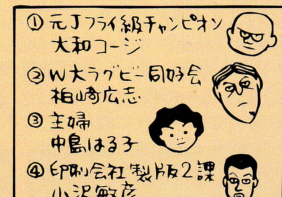 ① 元Jフライ級チャンピオン
大和コージ
② W大ラグビー同好会
柏崎広志
③ 主婦
中島はる子
④ 印刷会社製版2課
小沢敏彦